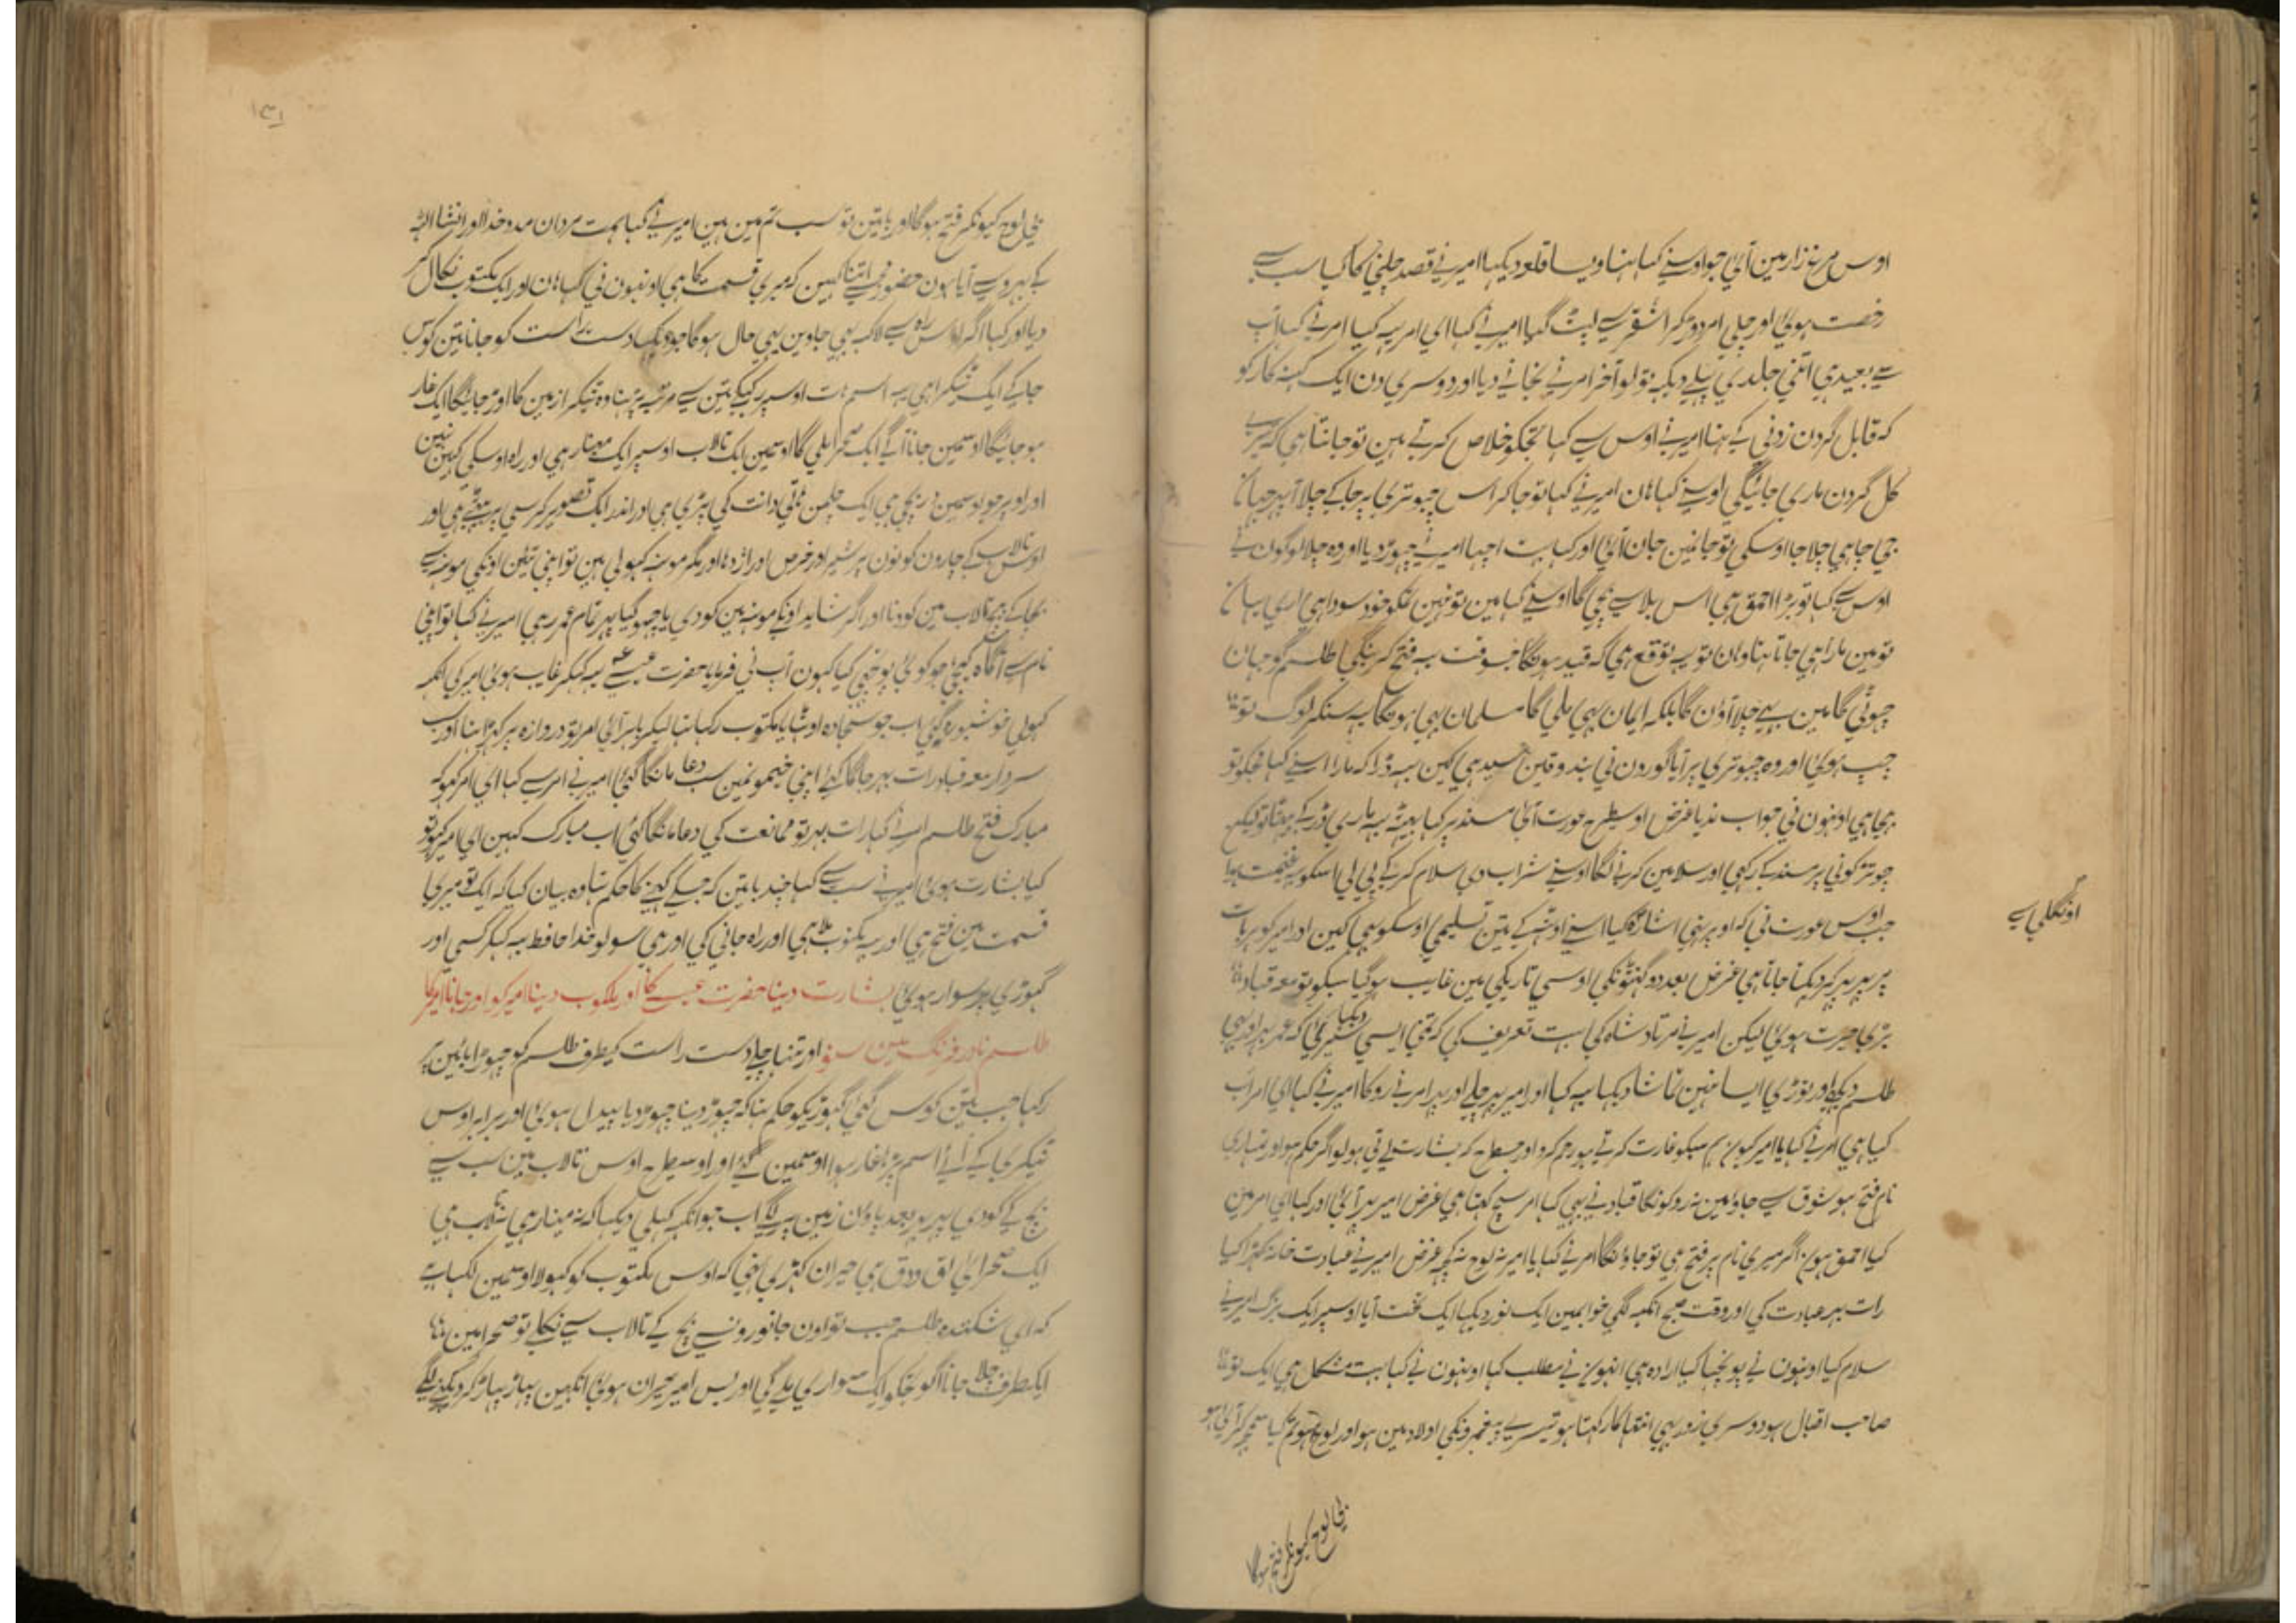 اوس مرغزار مین آئی جو اوسنے کہا تہا ویسا قلعہ دیکہا امیر نے قصد چلنی کا کیا سب سے
رخصت ہوئی اور چلی امر دوڑکر اشقر سے لپٹ گیا امیر نے کہا ای امر یہ کیا امر نے کہا آپ
سے بعید ہی اتنی جلدی پہلے دیکہہ تو لو آخر امر نے نجانے دیا اور دوسری دن ایک گنہ کار کو
کہ قابل گردن زدنی کے تہا امیر نے اوس سے کہا تجکو خلاص کرتے ہین تو جانتا ہی کہ
کل گردن ماری جائیگی اوسنے کہا ہان امیر نے کہا تو جا کر اس چبوتری پہ جا کے چلا آ پہر جہان
جی چاہی چلا جا اوسکی تو جا نمین جان آئی اور کہا بہت اچہا امیر نے چہوڑ دیا اور وہ چلا لوگون نے
اوس سے کہا تو بڑا احمق ہی اس بلا سے بچی گا اوسنے کہا مین تو نہین تمکو خود سودا ہی اری یہان
تو مین مارا ہی جاتا تہا وہان تو یہ توقع ہی کہ قید ہونگا جسوقت یہ فتح کرینگی طلسم کو جہان
چہوٹی گا مین بہی چلا آؤن گا بلکہ ایمان بہی ملی گا مسلمان بہی ہونگا یہ سنکر لوگ تو
چپ ہوئی اور وہ چبوتری پر آیا گورون نی بندوقین سیدہی کین یہ ڈرا کہ مارا اسنے کہا
ہی اونہون نی جواب ندیا غرض اوسیطرح عورت آئی مسند پر کہا بیٹہہ یہ ماری ڈر کے
چوتڑ کونی پر مسند کے رکہی اور سلامین کرنے لگا اوسنے شراب دی سلام کر کے پی لی اسکو یہ غنیمت
جب اوس عورت نی کہ اوپر اشارہ کیا اسنے اوٹہہ کے تین تسلیمین اوسکو بہی کین اور امیر کو
اونگلی سے
پہر پہر کر دیکہتا جاتا ہی غرض بعد دو گہنٹونکی اوسی تاریکی مین غایب ہو گیا سبکو تو معہ قباد
بڑی حیرت ہوئی لیکن امیر نے مرتاد شاہ کی بہت تعریف کی کہ تمنی ایسی سیر دکہائی کہ عمر بہر اور بہی
طلسم دیکہے اور توڑی ایسا نہین تماشا دیکہا یہ کہا اور امیر پہر چلے اور پہر امر نے روکا امیر نے کہا ای امر اب
کیا ہی امر نے کہا یا امیر کیون ہم سبکو غارت کرتے ہو رحم کرو اور جسطرح کہ بشارت لے تی ہو لو اگر حکم ہو اور تمہاری
نام فتح ہو شوق سے جاؤ مین نہ روکونگا قباد نے بہی کہا امر سچ کہتا ہی غرض امیر پہر آئی اور کہا ای امر مین
کیا احمق ہون اگر میری نام پر فتح ہی تو جاؤنگا امر نے کہا یا امیر نہ لوح نہ کچہہ غرض امیر نے عبادت خانہ کہڑا کیا
رات بہر عبادت کی اور وقت صبح انکہہ لگی خوابمین ایک نور دیکہا ایک تخت آیا اوسپر ایک بزرگ امیر نے
سلام کیا اونہون نے پوچہا کیا ارادہ ہی انہون نے مطلب کہا اونہون نے کہا بہت مشکل ہی ایک تو
صاحب اقبال ہو دوسری زور بہی انتہا کا رکہتا ہو تیسرے پیغمبرونکی اولاد مین ہو اور لوح ہو تم کیا سمجہہ کر آئی ہو
بی لوح کیونکر فتح ہوگا
۱۳۱
بی لوح کیونکر فتح ہوگا اور باتین تو سب تم مین ہین امیر نے کہا ہمت مردان مدد خدا اور انشا اللہ
کے بہروسے آیا ہون حضور مجہے اتنا کہین کہ میری قسمت کا ہی اونہون نی کہا ہان اور ایک مکتوب نکال کر
دیا اور کہا اگر اوس راہ سے لاکہہ بہی جاوین یہی حال ہوگا جو دیکہا دست راست کو جانا تین کوس
جا کے ایک ٹیکرا ہی یہ اسم ہت اوسپر رکہکے تین سے مرتبہ پڑہنا وہ ٹیکرا زمین کا اوڑ جائیگا ایک غار
ہو جائیگا اوسمین جانا آگے ایک صحرا ملی گا اوسمین ایک تالاب اوسپر ایک مینار ہی اور راہ اوسکی کہین نہین
اور اوپر جو اوسمین دریچی ہی ایک چلمن ہاتی دانت کی پڑی ہی اور اندر ایک تصویر کرسی پر بیٹہی ہی اور
اوس تالاب کے چارون کونون پر شیر اور خرس اور اژدہا اور مگر مونہہ کہولی ہین تو اپنی تیئن اونکی مونہہ سے
بچا کے بیچ تالاب مین کودنا اور اگر شاید اونکے مونہہ مین کودی یا چہو گیا پہر تمام عمر رہی امیر نے کہا تو اپنی
نام سے آگاہ کیجی جو کوئی پوچہی کیا کہون آپ نی فرمایا حضرت عیسے یہ کہکر غایب ہوئی امیر کی انکہہ
کہولی خوشبو رہ گئی اب جو سجادہ اوٹہایا مکتوب رکہا تہا لیکر باہر آئی امر تو دروازہ پر کہڑا تہا اور سب
سردار معہ قباد رات بہر جاگا کئے اپنی خیمونمین سب دعا مانگا کئی امیر نے امر سے کہا ای امر کہو کہ
مبارک فتح طلسم امر نے کہا رات بہر تو ممانعت کی دعا مانگا کئی اب مبارک کہین ای امیر کہو تو
کیا بشارت ہوئی امیر نے سب سے کہا چند باتین کہ جسکے کہنے کا حکم تہا وہ بیان کیا کہ ایک تو میری
قسمت مین فتح ہی اور یہ مکتوب ملا ہی اور راہ جانی کی اور ہی سو لو خدا حافظ یہ کہکر کسی اور
گہوڑی پر سوار ہوئی بشارت دینا حضرت عیسے کا اور مکتوب دینا امیر کو اور جانا امیر کا
طلسم نادر فرنگ مین سنو اور تنہا چلے دست راست کیطرف طلسم کو چہوڑا بائین پر
رکہا جب تین کوس گئی گہوڑیکو حکم تہا کہ چہوڑ دینا چہوڑ دیا پیدل ہوئی اور برابر اوس
ٹیکری کے آئے اسم پڑہا غار ہوا اوسمین گئے اور اوسیطرح اوس تالاب مین سب سے
بچ کے کودی پہر پہر بعد پاؤن زمین سے لگے اب جو انکہہ کہلی دیکہا کہ نہ مینار ہی نہ تالاب ہی
ایک صحرائی لق ودق ہی حیران کہڑی رہی کہ اوس مکتوب کو کہولا اوسمین لکہا ہے
کہ ای شکنندہ طلسم جب تو اون جانورونسے بچ کے تالاب سے نکلے تو صحرا مین
ایکطرف چلا جانا آگو تجکو ایک سواری ملے گی اور بس امیر حیران ہوئی انکہین پہاڑ پہاڑ کر دیکہنے لگے